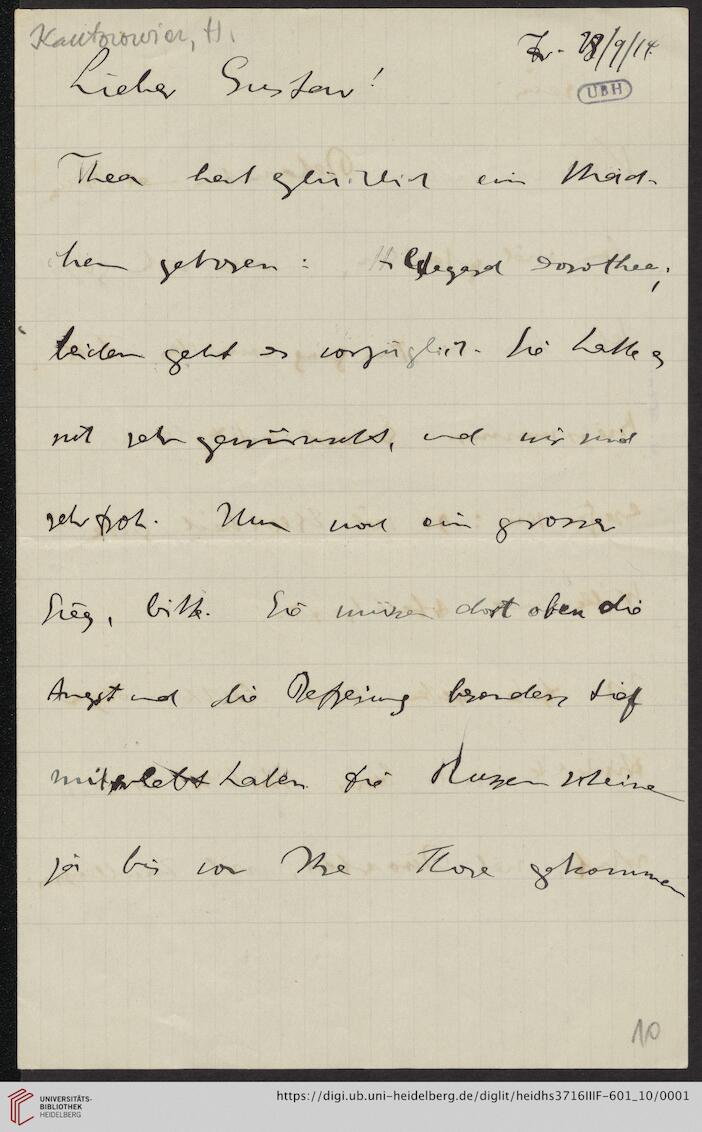 Kantorowicz, H.
Fr. 28/9/14
UBH
Lieber Gustav!
Thea hat glücklich ein Mäd-
chen geboren: Hildegard Dorothea;
beiden geht es vorzüglich. Sie hatte es
sich sehr gewünscht, und wir sind
sehr froh. Nun noch ein grosser
Sieg, bitte. Sie müssen dort oben die
Angst und die Befreiung besonders tief
miterlebt haben. Die Russen scheinen
ja bis vor Ihre Thore gekommen
10
UNIVERSITÄTS-
BIBLIOTHEK
HEIDELBERG
https://digi.ub.uni-heidelberg.de/diglit/heidhs3716IIIF-601_10/0001